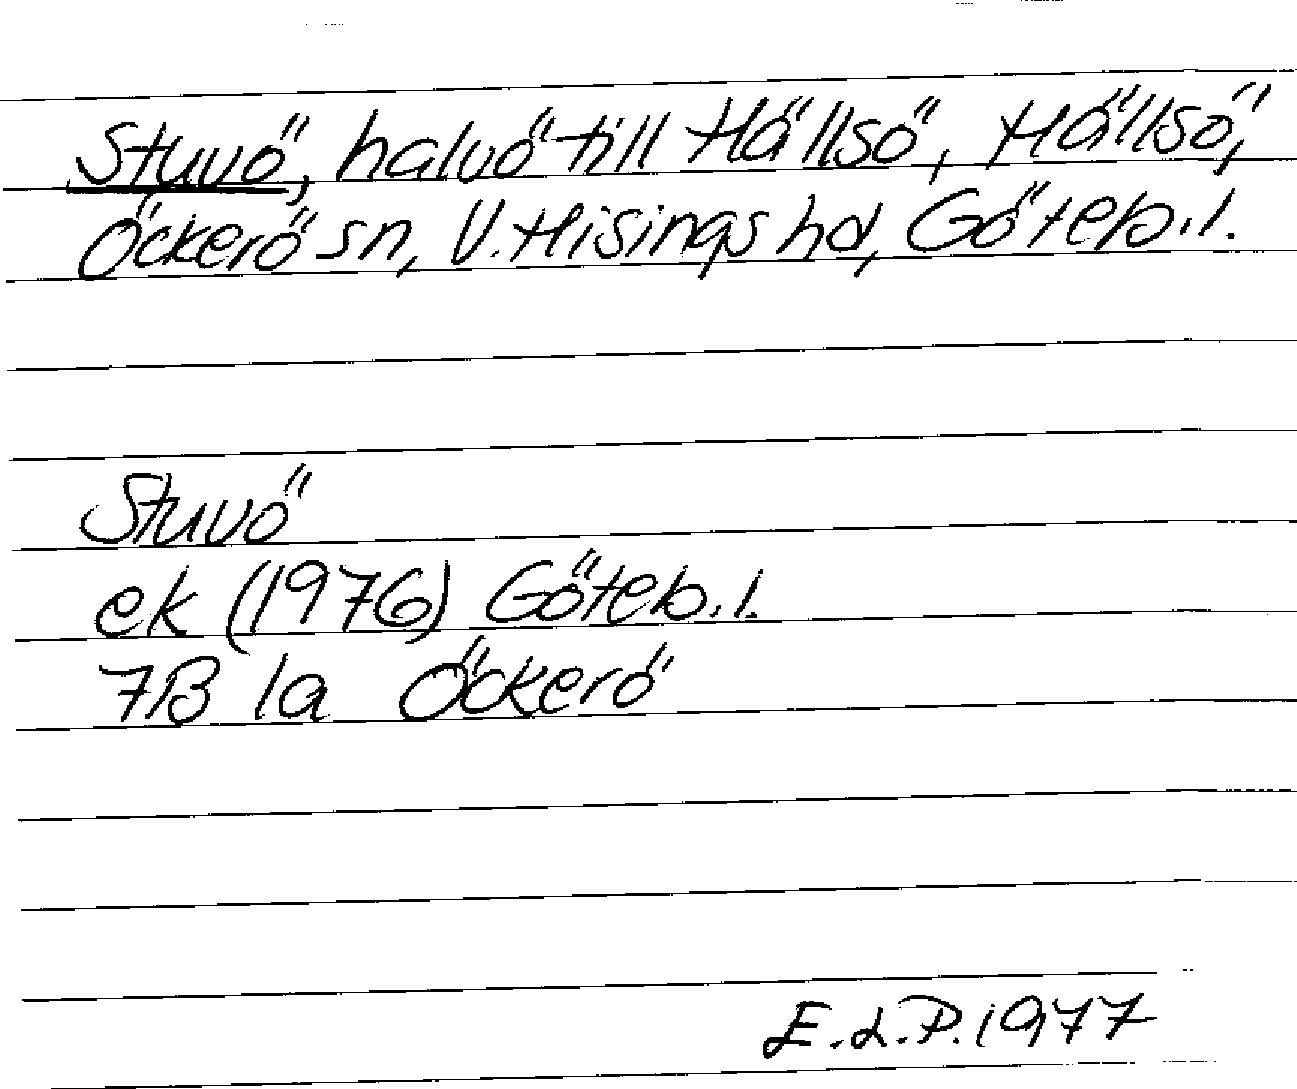 Stuvö, halvö till Hällsö, Hällsö,
Öckerö sn, V. Hisings hd, Göteb. l.
Stuvö
ek (1976) Göteb. l.
7B 1a Öckerö
E.L.P. 1977